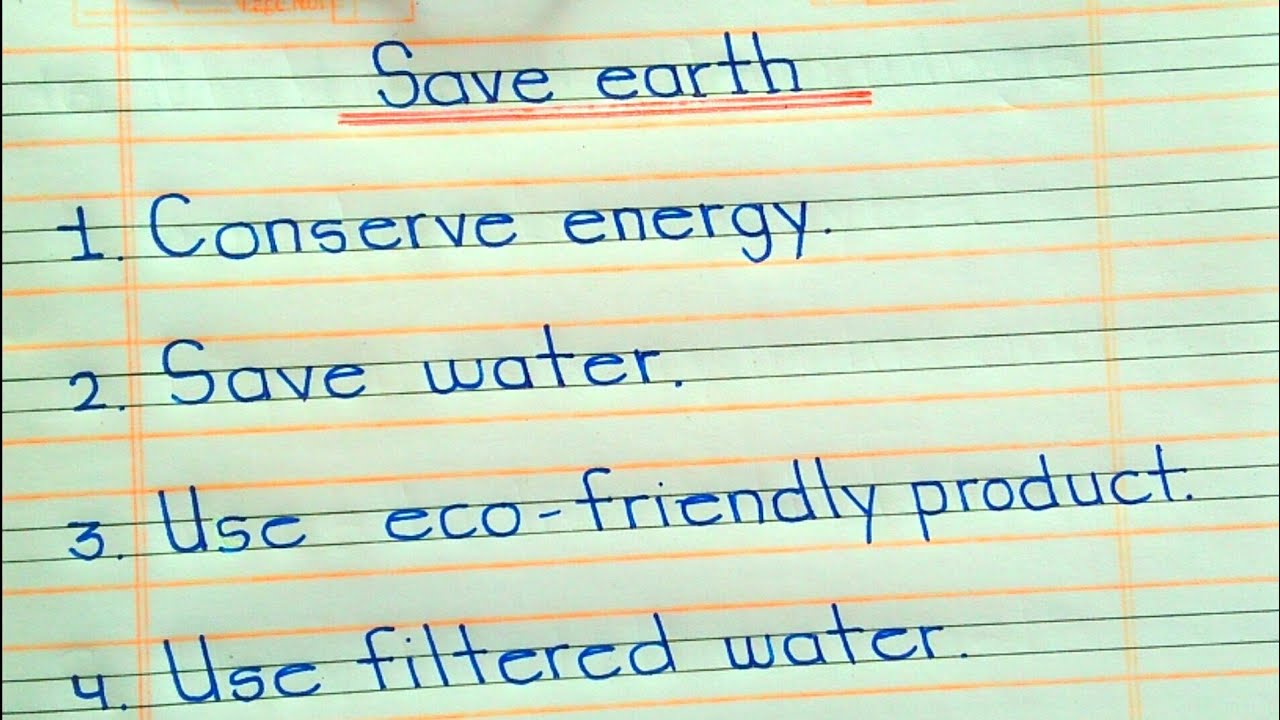 Save earth
1. Conserve energy.
2. Save water.
3. Use eco-friendly product.
4. Use filtered water.